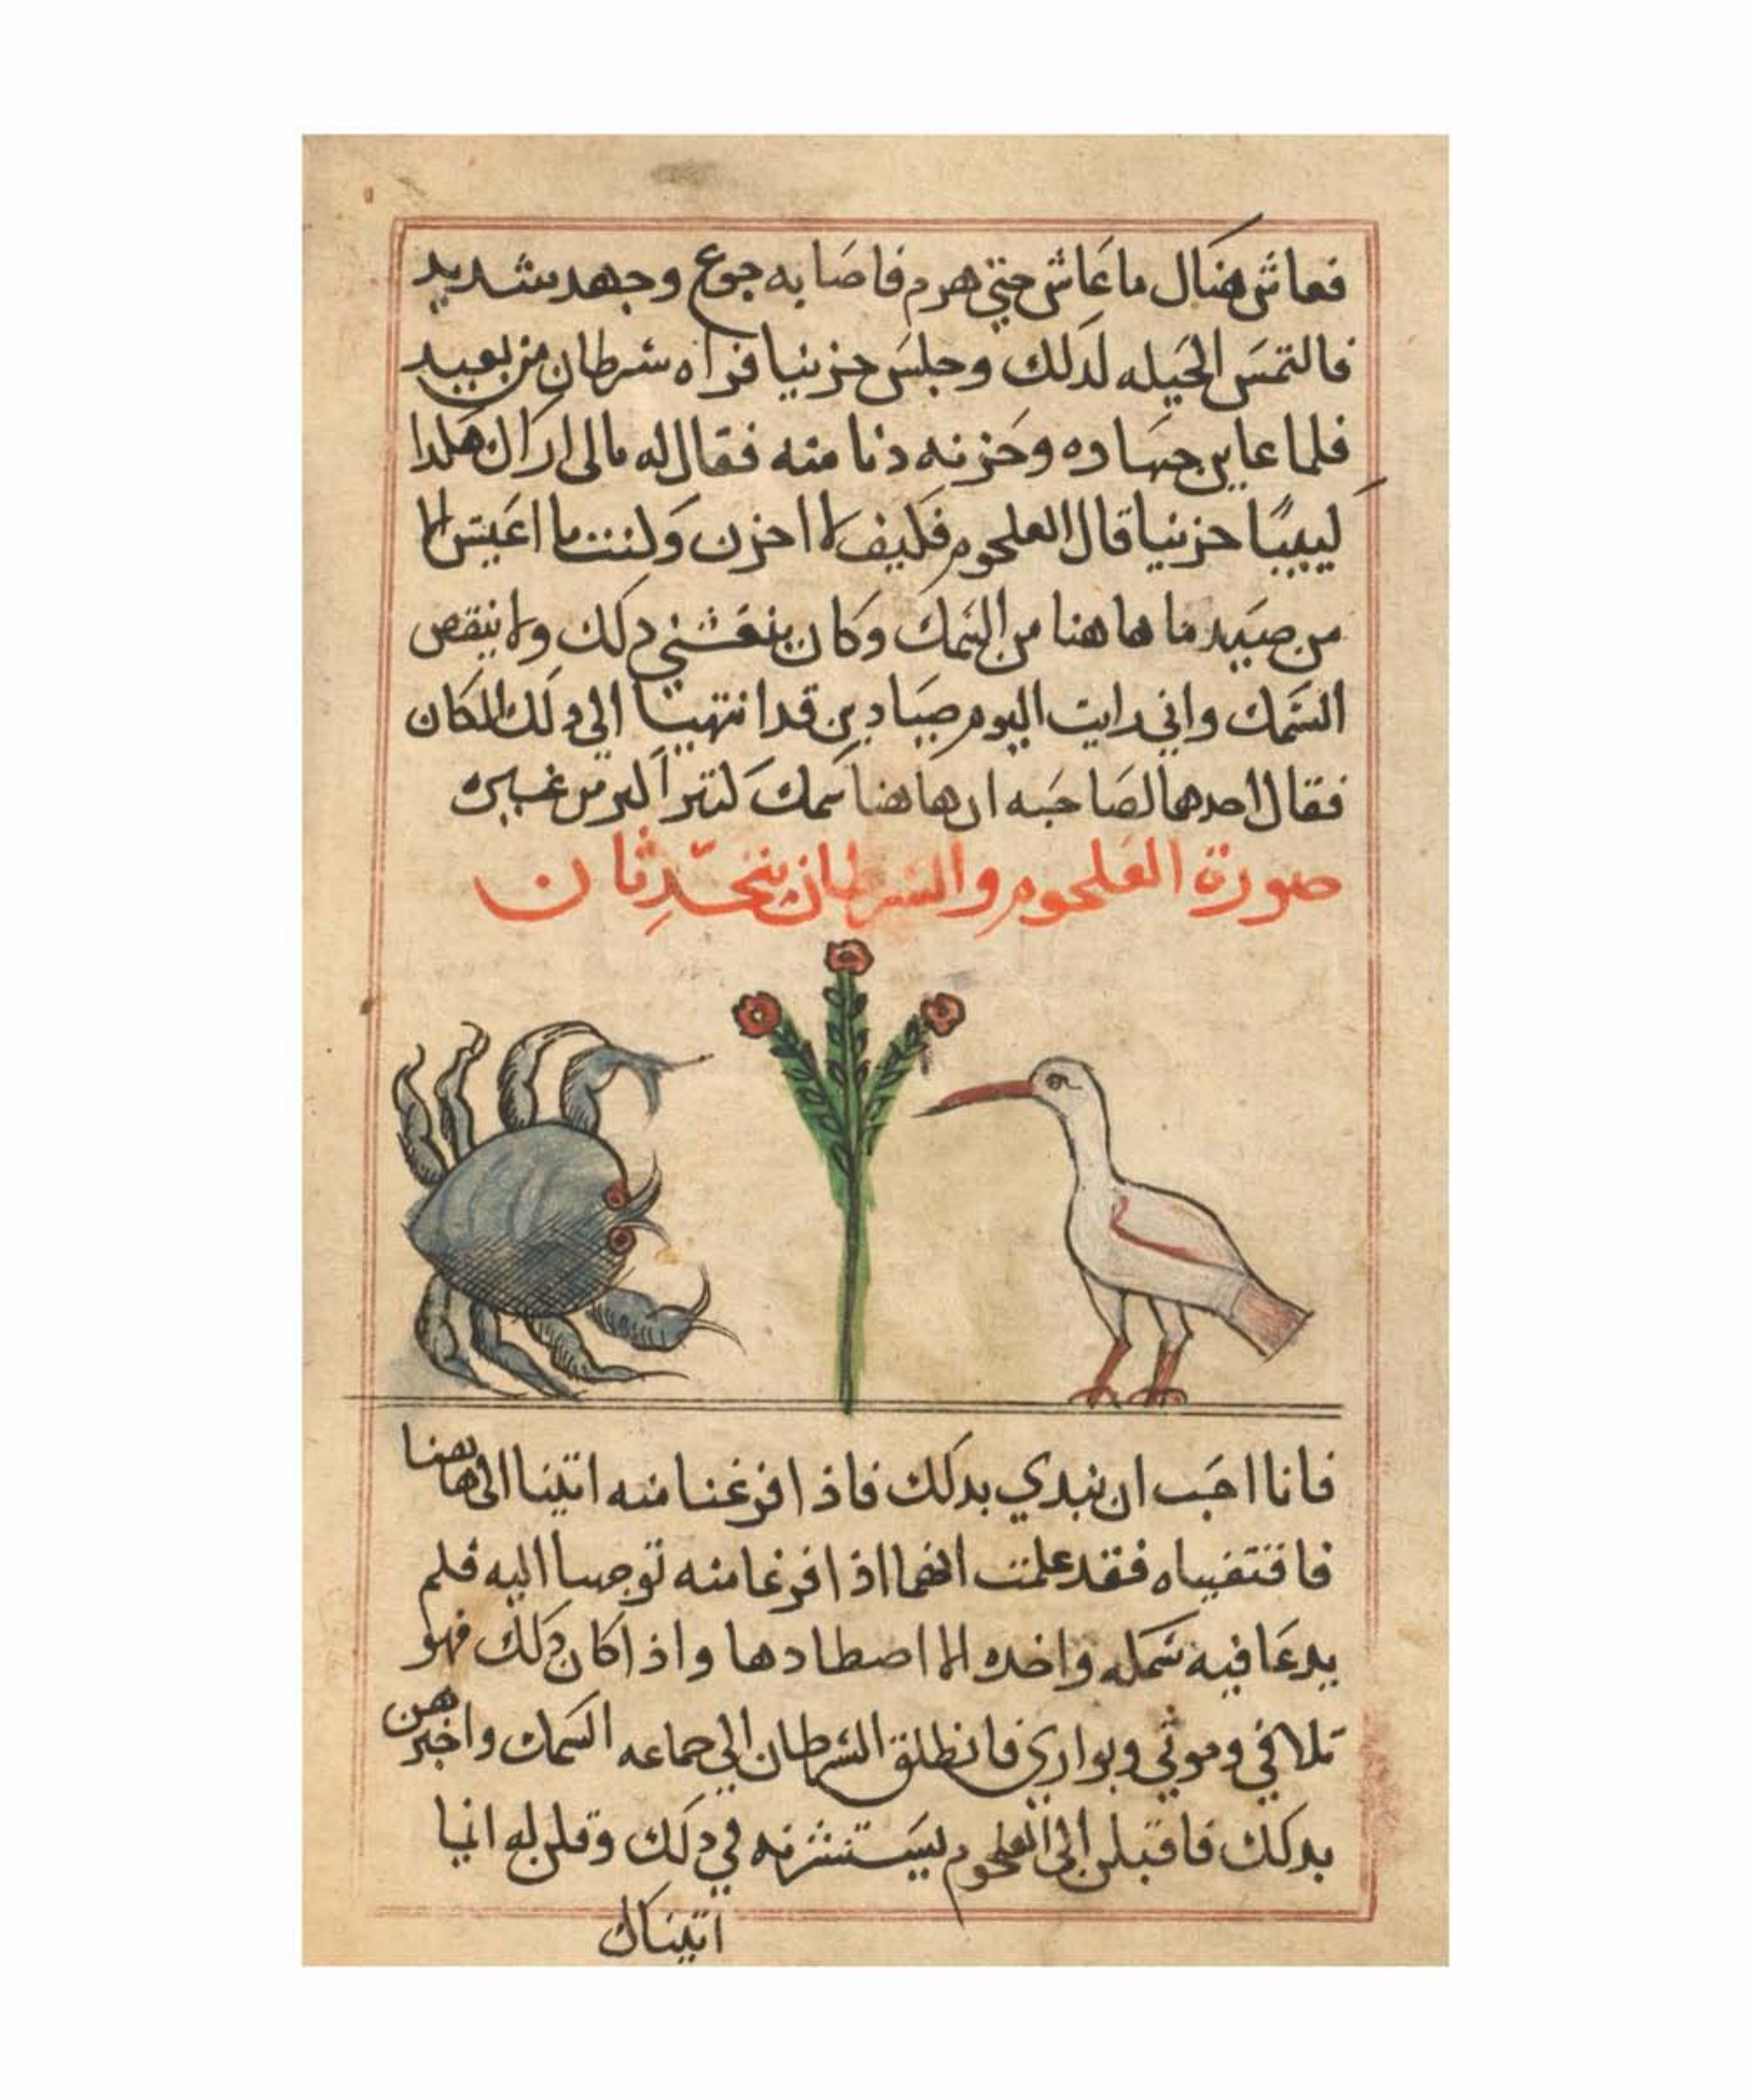 فعاش هناك ما عاش حتي هرم فاصابه جوع وجهد شديد
فالتمس الحيله لدلك وجلس حزينا فراه سرطان من بعيد
فلما عاين وحزنه دنا منه فقال له مالى اراك هكدا
كييبًا حزينيا قال العلجوم فكيف لا احزن وكنت ما اعيش الا
من صيد ما هاهنا من السمك وكان دلك ولا ينقص
السمك واني رايت اليوم صيادين قد انتهيا الي دلك المكان
فقال احدهما لصاحبه ان هاهنا سمك كتير اكبر من غيره
صورة العلجوم والسرطان يتحدثان
فانا احب ان نبدي بدلك فاذا فرغنا منه اتينا الى هاهنا
فقد علمت انهما اذا فرغا منه توجها اليه فلم
يدعا فيه سمكه واحده الا اصطادها واذا كان دلك فهو
تلافي وموتي وبواري فانطلق السرطان الي جماعه السمك واخبرهن
بدلك فاقبلن الى العلجوم في دلك وقلن له انيا
اتيناك